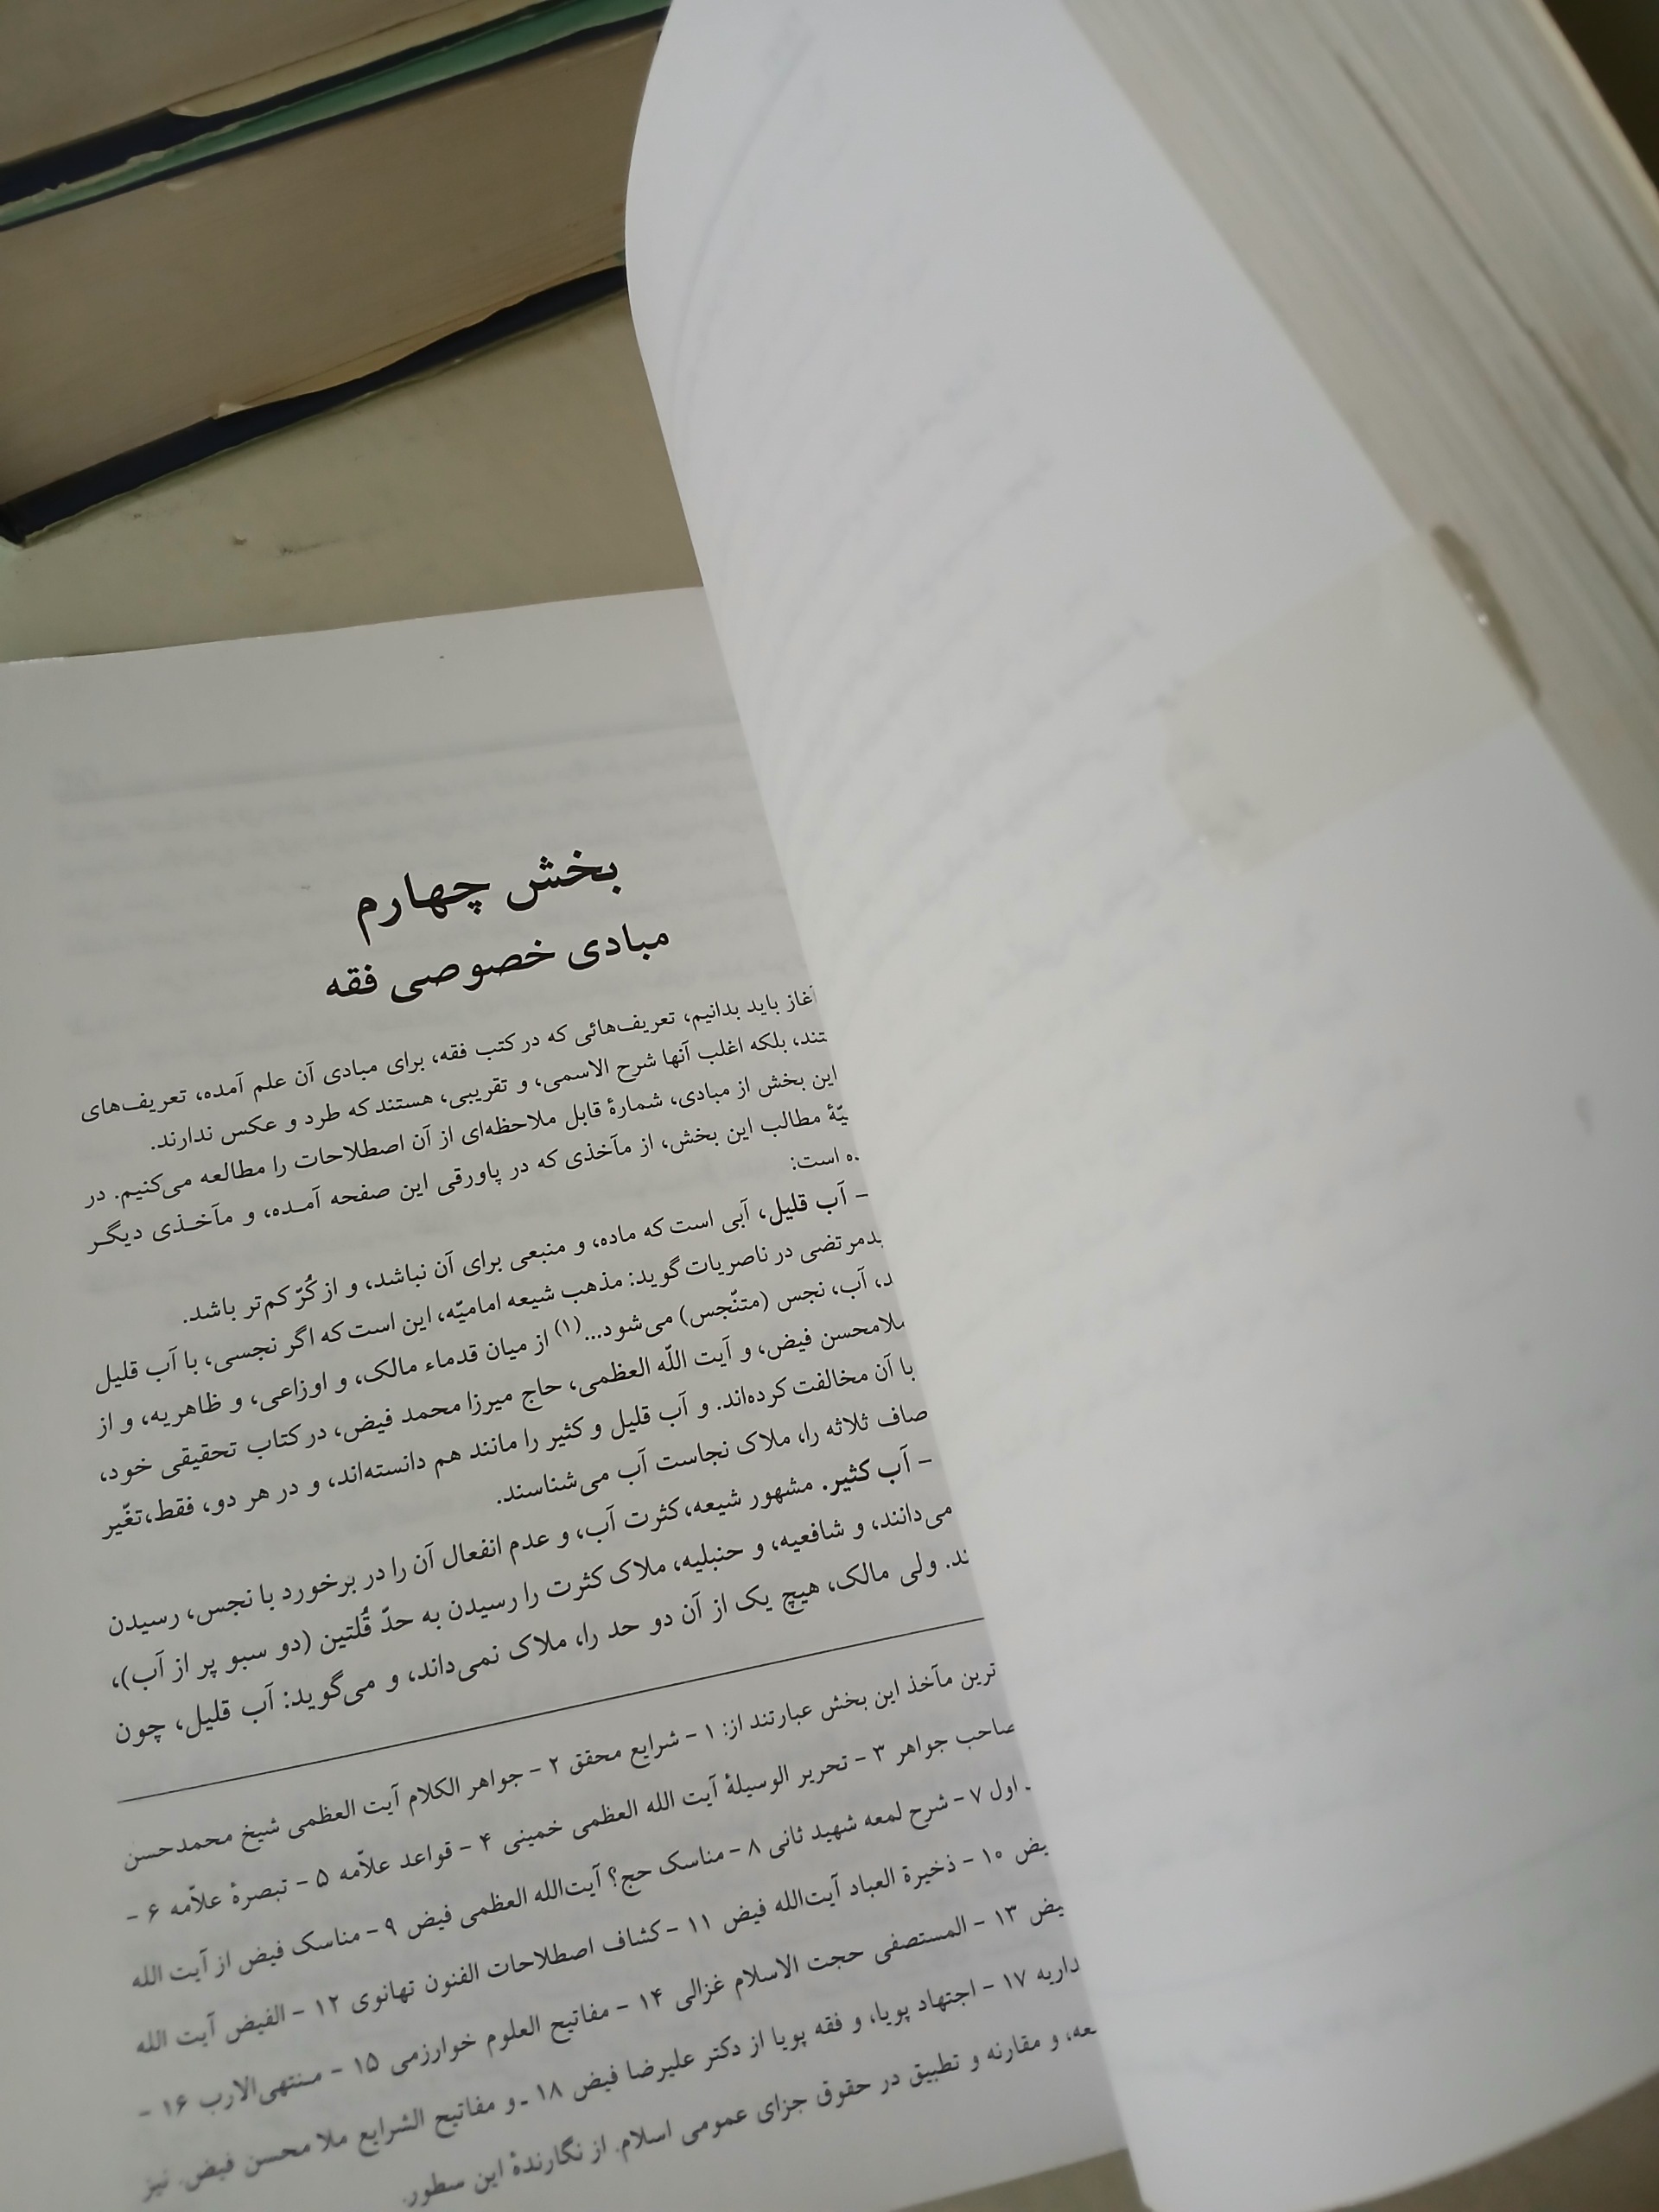 بخش چهارم
مبادی خصوصی فقه
آغاز باید بدانیم، تعریف‌هائی که در کتب فقه، برای مبادی آن علم آمده، تعریف‌های
بلکه اغلب آنها شرح الاسمی، و تقریبی، هستند که طرد و عکس ندارند.
این بخش از مبادی، شمارهٔ قابل ملاحظه‌ای از آن اصطلاحات را مطالعه می‌کنیم. در
مطالب این بخش، از مآخذی که در پاورقی این صفحه آمـده، و مآخـذی دیگـر
است:
- آب قلیل، آبی است که ماده، و منبعی برای آن نباشد، و از کُرّ کم‌تر باشد.
در ناصریات گوید: مذهب شیعه امامیّه، این است که اگر نجسی، با آب قلیل
آب، نجس (متنّجس) می‌شود...(۱) از میان قدماء مالک، و اوزاعی، و ظاهریه، و از
ملامحسن فیض، و آیت اللّه العظمی، حاج میرزا محمد فیض، در کتاب تحقیقی خود،
با آن مخالفت کرده‌اند. و آب قلیل و کثیر را مانند هم دانسته‌اند، و در هر دو، فقط،تغّیر
ثلاثه را، ملاک نجاست آب می‌شناسند.
- آب کثیر. مشهور شیعه،کثرت آب، و عدم انفعال آن را در برخورد با نجس، رسیدن
می‌دانند، و شافعیه، و حنبلیه، ملاک کثرت را رسیدن به حدّ قُلتین (دو سبو پر از آب)،
ولی مالک، هیچ یک از آن دو حد را، ملاک نمی‌داند، و می‌گوید: آب قلیل، چون
مآخذ این بخش عبارتند از: ۱ - شرایع محقق ۲ - جواهر الکلام آیت العظمی شیخ محمدحسن
صاحب جواهر ۳ - تحریر الوسیلهٔ آیت الله العظمی خمینی ۴ - قواعد علاّمه ۵ - تبصرهٔ علاّمه ۶ -
اول ۷ - شرح لمعه شهید ثانی ۸ - مناسک حج؟ آیت‌الله العظمی فیض ۹ - مناسک فیض از آیت الله
۱۰ - ذخیرة العباد آیت‌الله فیض ۱۱ - کشاف اصطلاحات الفنون تهانوی ۱۲ - الفیض آیت الله
۱۳ - المستصفی حجت الاسلام غزالی ۱۴ - مفاتیح العلوم خوارزمی ۱۵ - مـنتهی‌الارب ۱۶ -
۱۷ - اجتهاد پویا، و فقه پویا از دکتر علیرضا فیض ۱۸ ـ و مفاتیح الشرایع ملا محسن فیض. نیز
و مقارنه و تطبیق در حقوق جزای عمومی اسلام. از نگارندهٔ این سطور.